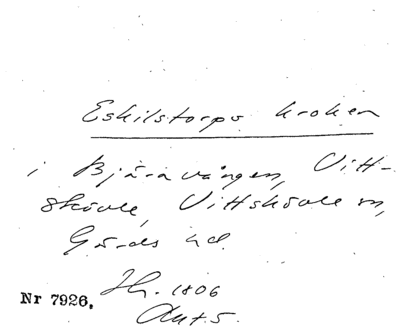 Eskilstorps kroken
i Bjäravången, Vitt-
skövle, Vittskövle sn,
Gärds hd.
Nr 7926.
Jb. 1806
Akt. 5.